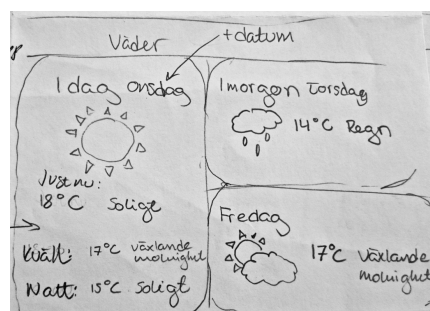 Väder
+datum
I dag onsdag
Just nu:
18°C Soligt
Kväll: 17°C växlande
molnighet
Natt: 15°C Soligt
Imorgon Torsdag
14°C Regn
Fredag
17°C Växlande
molnighet